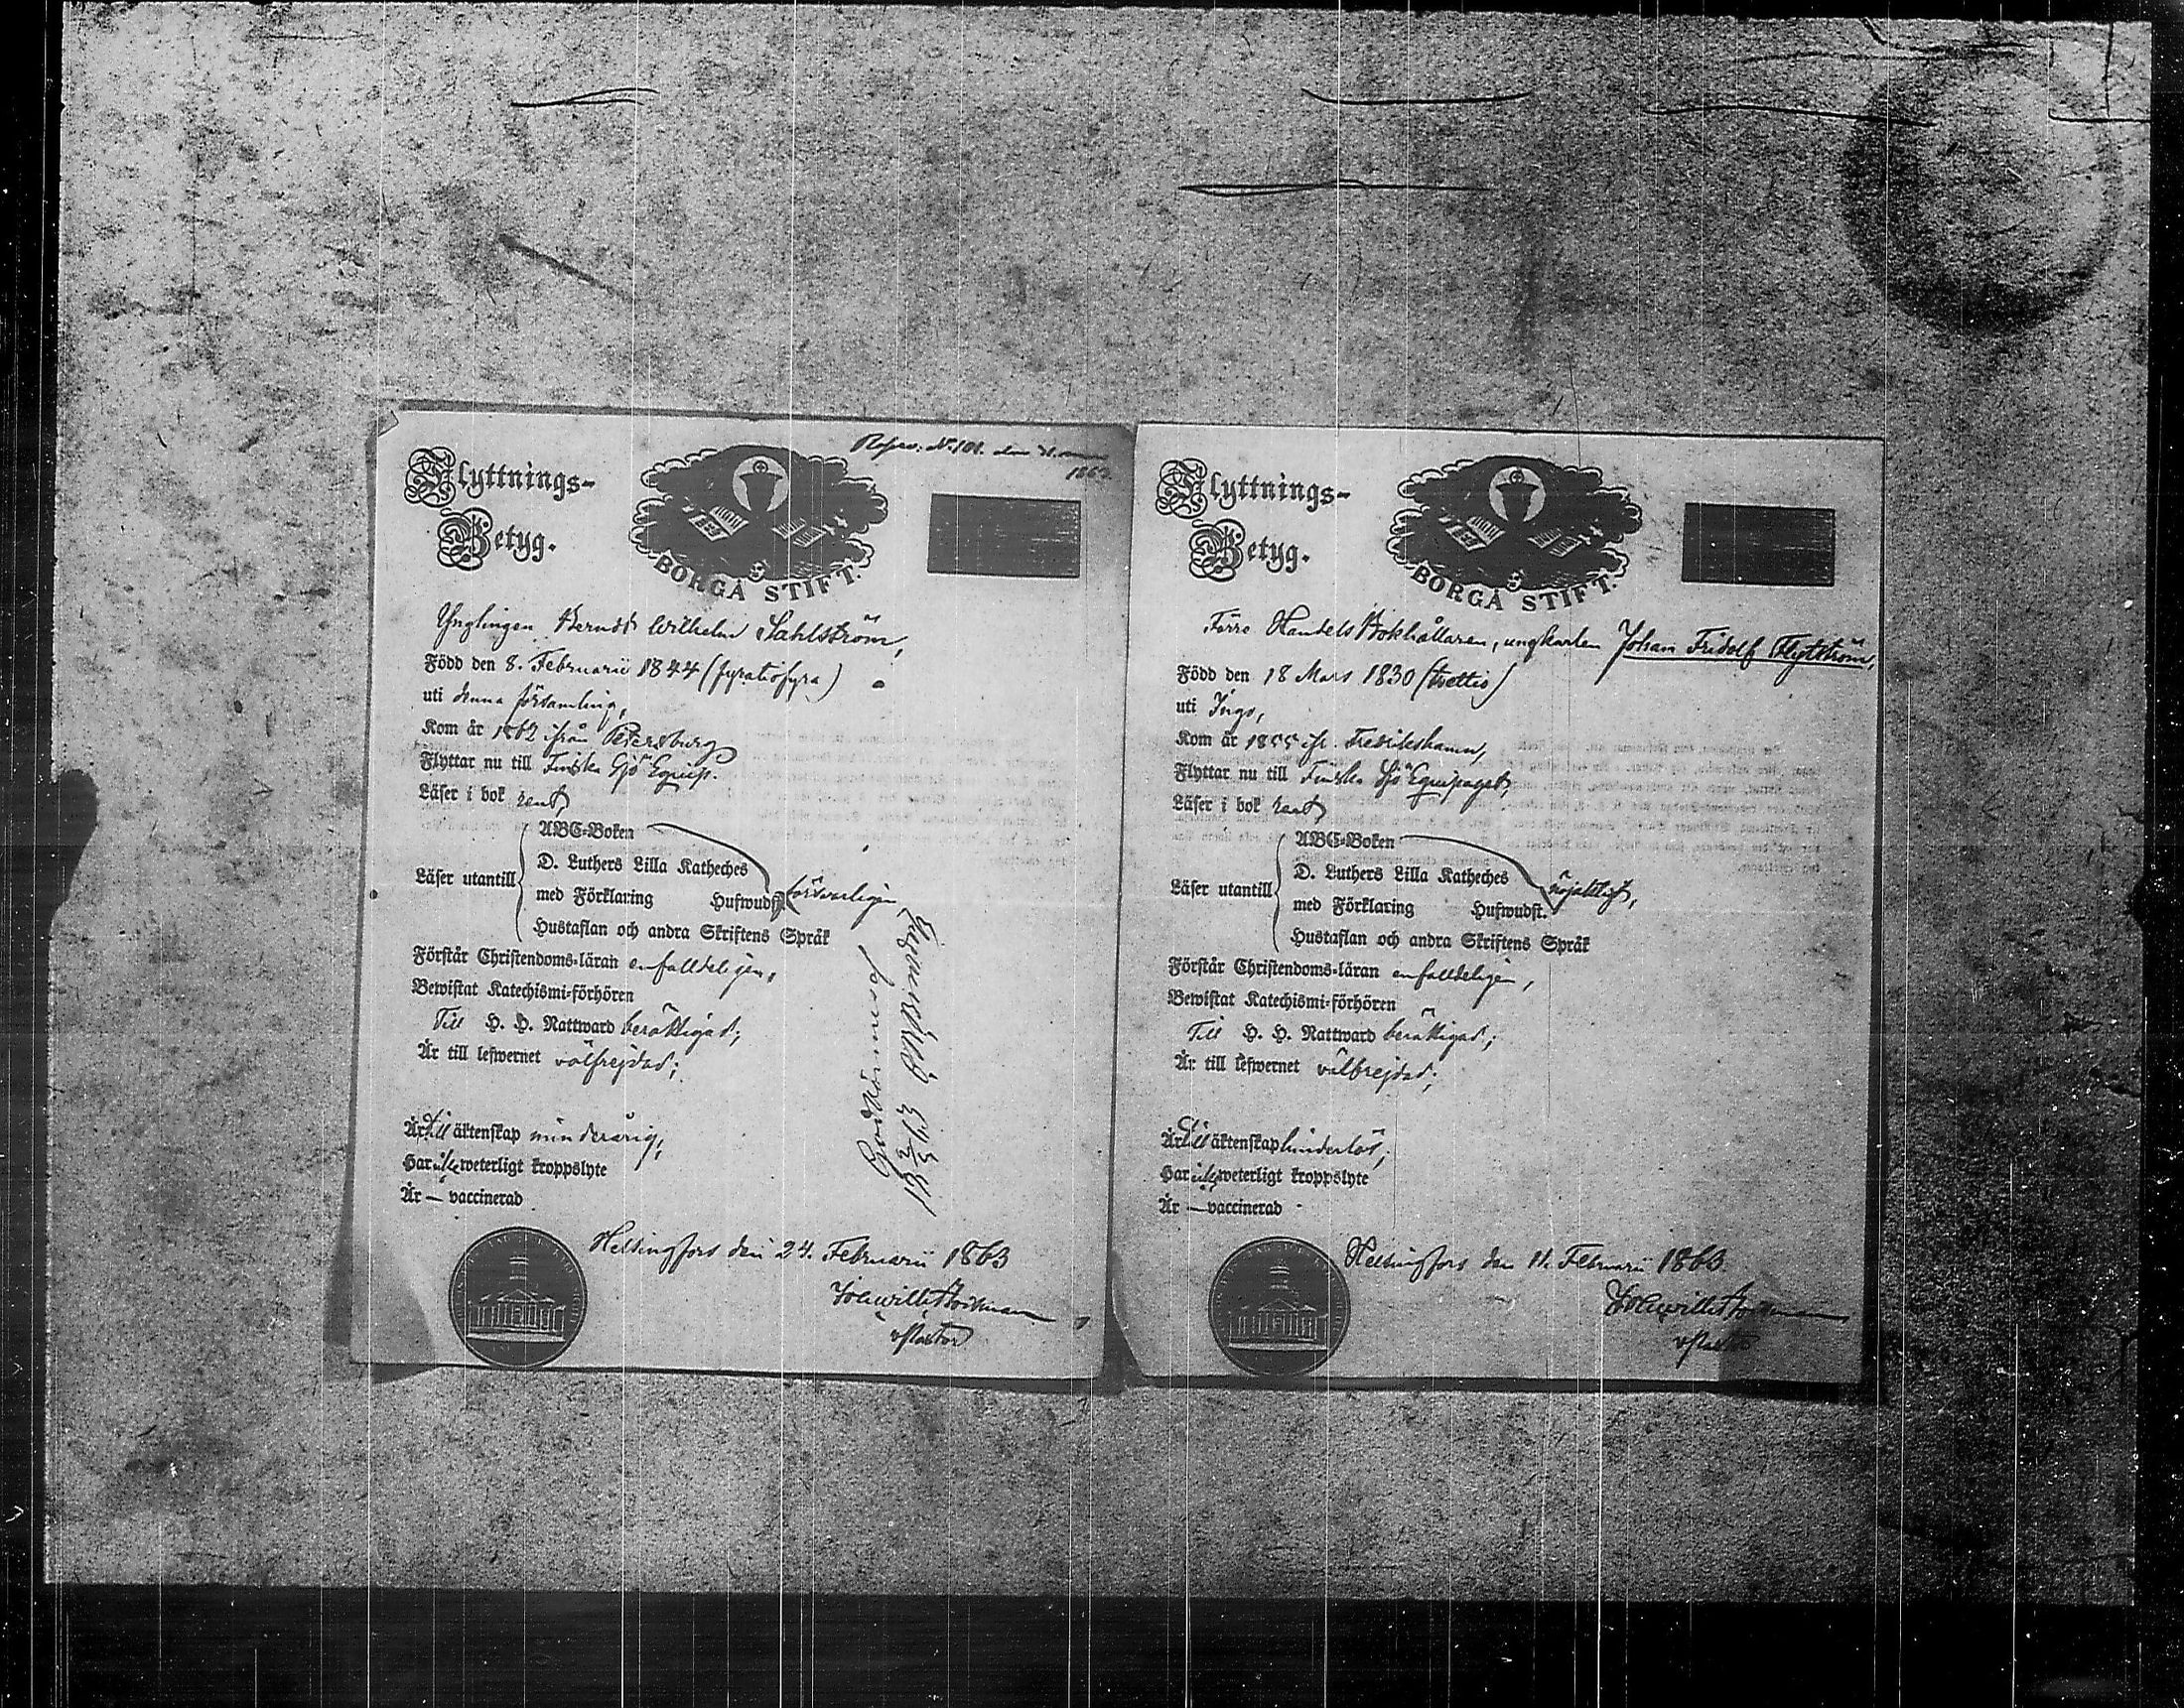 Flyttnings-
Betyg.
BORGÅ STIFT.
1863.
Ynglingen Berndt Wilhelm Sahlström,
Född den 8. Februarii 1844 (fyratiofyra)
uti denna församling,
Kom år 1862 ifrån Petersburg
Flyttar nu till Finska Sjö Equip.
Läser i bok rent,
ABC-Boken
D. Luthers Lilla Katheches
Läser utantill med Förklaring Hufwudst. försvarligen
Hustaflan och andra Skriftens Språk
Förstår Christendoms-läran enfalldeligen,
Bewistat Katechismi-förhören
Till H. H. Nattward berättigad;
Är till lefwernet välfrejdad;
Är till äktenskap minderårig,
Har icke weterligt kroppslyte
Är — vaccinerad
Helsingfors den 24. Februarii 1863
vPastor
Flyttnings-
Betyg.
BORGÅ STIFT.
Förre Handels Bokhållaren, ungkarlen Johan Fridolf Flytström,
Född den 18 Mars 1830 (trettio)
uti Ingo,
Kom år 1855 ifr. Fredrikshamn,
Flyttar nu till Finska Sjö Equipaget,
Läser i bok rent,
ABC-Boken
D. Luthers Lilla Katheches
Läser utantill med Förklaring Hufwudst. nöjaktigt,
Hustaflan och andra Skriftens Språk
Förstår Christendoms-läran enfalldeligen,
Bewistat Katechismi-förhören
Till H. H. Nattward berättigad;
Är till lefwernet välfrejdad;
Är till äktenskap hinderlös;
Har icke weterligt kroppslyte
Är — vaccinerad
Helsingfors den 11. Februarii 1863
vPastor